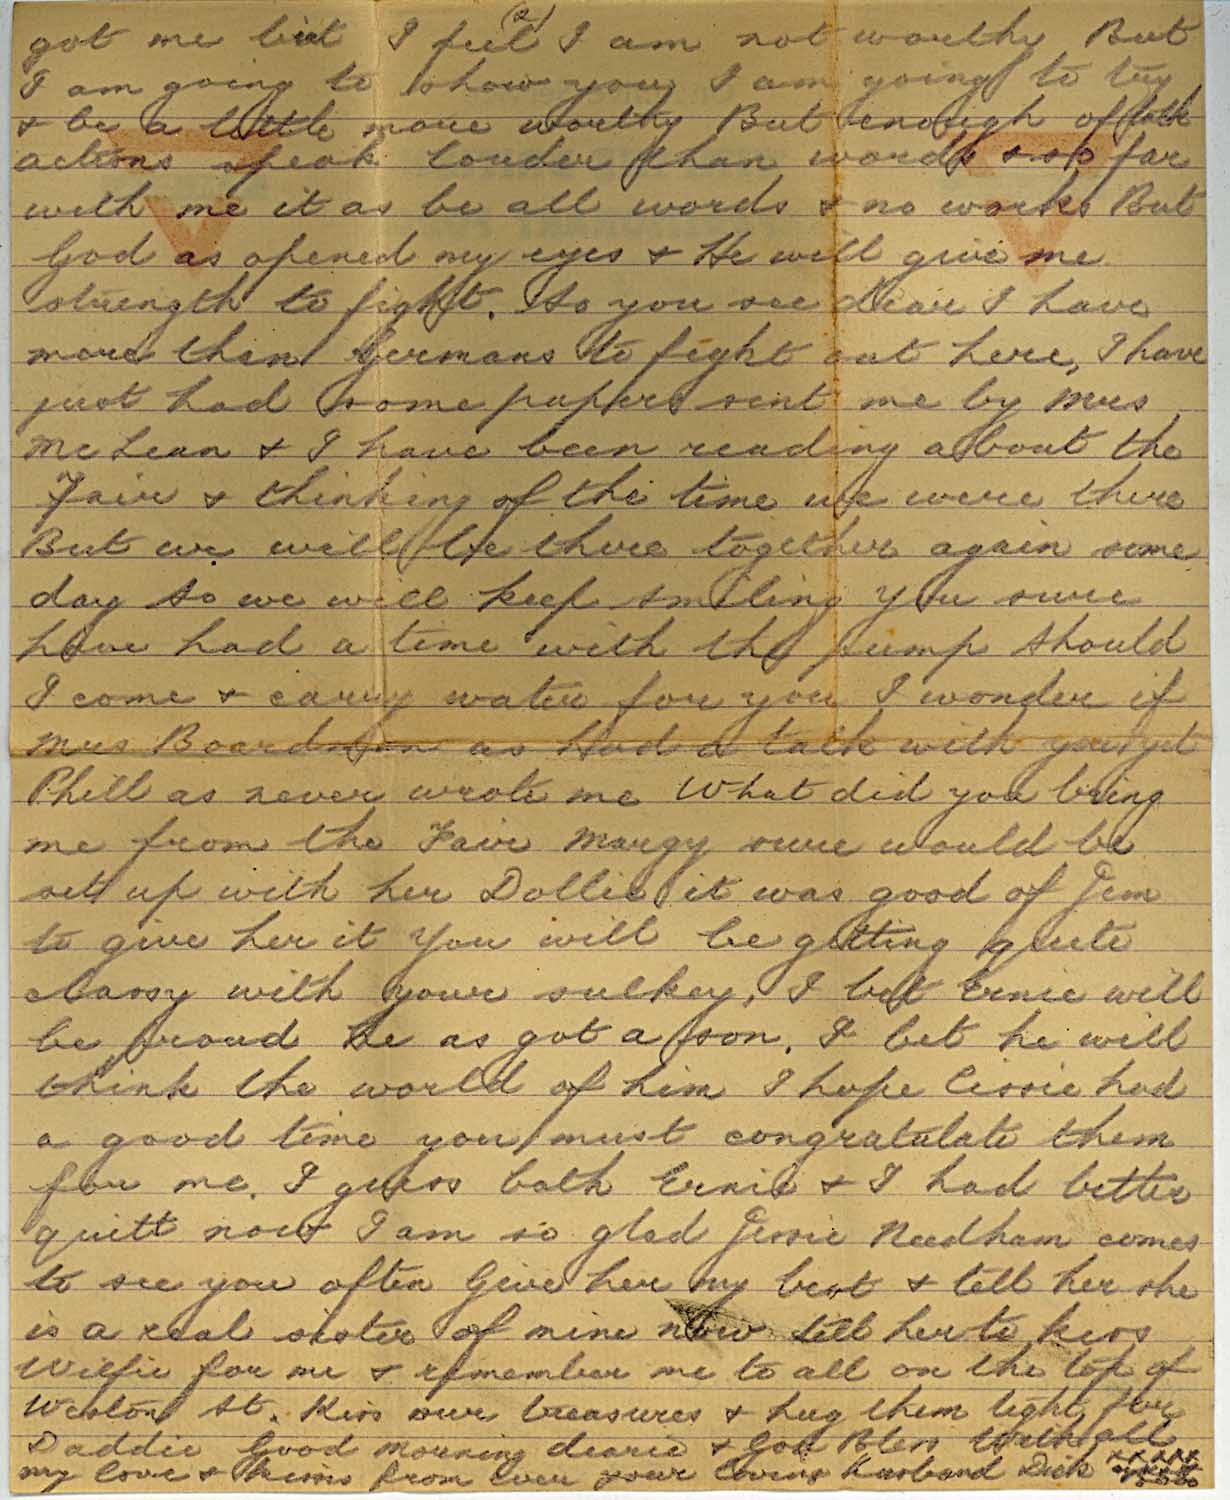 (2)
got me but I feel I am not worthy But
I am going to show you I am going to try
& be a little more worthy But enough of talk
actions speak louder than words & so far
with me it as be all words & no works But
God as opened my eyes & He will give me
strength to fight. So you see dear I have
more then Germans to fight out here, I have
just had some papers sent me by Mrs
McLean & I have been reading about the
Fair & thinking of the time we were there
But we will be there together again some
day So we will keep smiling You sure
have had a time with the pump Should
I come & carry water for you I wonder if
Mrs Boardman as Had a talk with you yet
Phill as never wrote me What did you bring
me from the Fair Margy sure would be
set up with her Dollie, it was good of Jim
to give her it You will be getting quite
classy with your sulkey, I bet Ernie will
be proud He as got a son. I bet he will
think the world of him I hope Cissie had
a good time you must congratulate them
for me. I guess both Ernie & I had better
quitt now I am so glad Jessie Needham comes
to see you often Give her my best & tell her she
is a real sister of mine now tell her to kiss
Wilfie for me & remember me to all on the top of
Weston St. Kiss our treasures & hug them tight for
Daddie Good morning dearie & God Bless With all
my love & kisses from ever your loving Husband Dick xxxxx